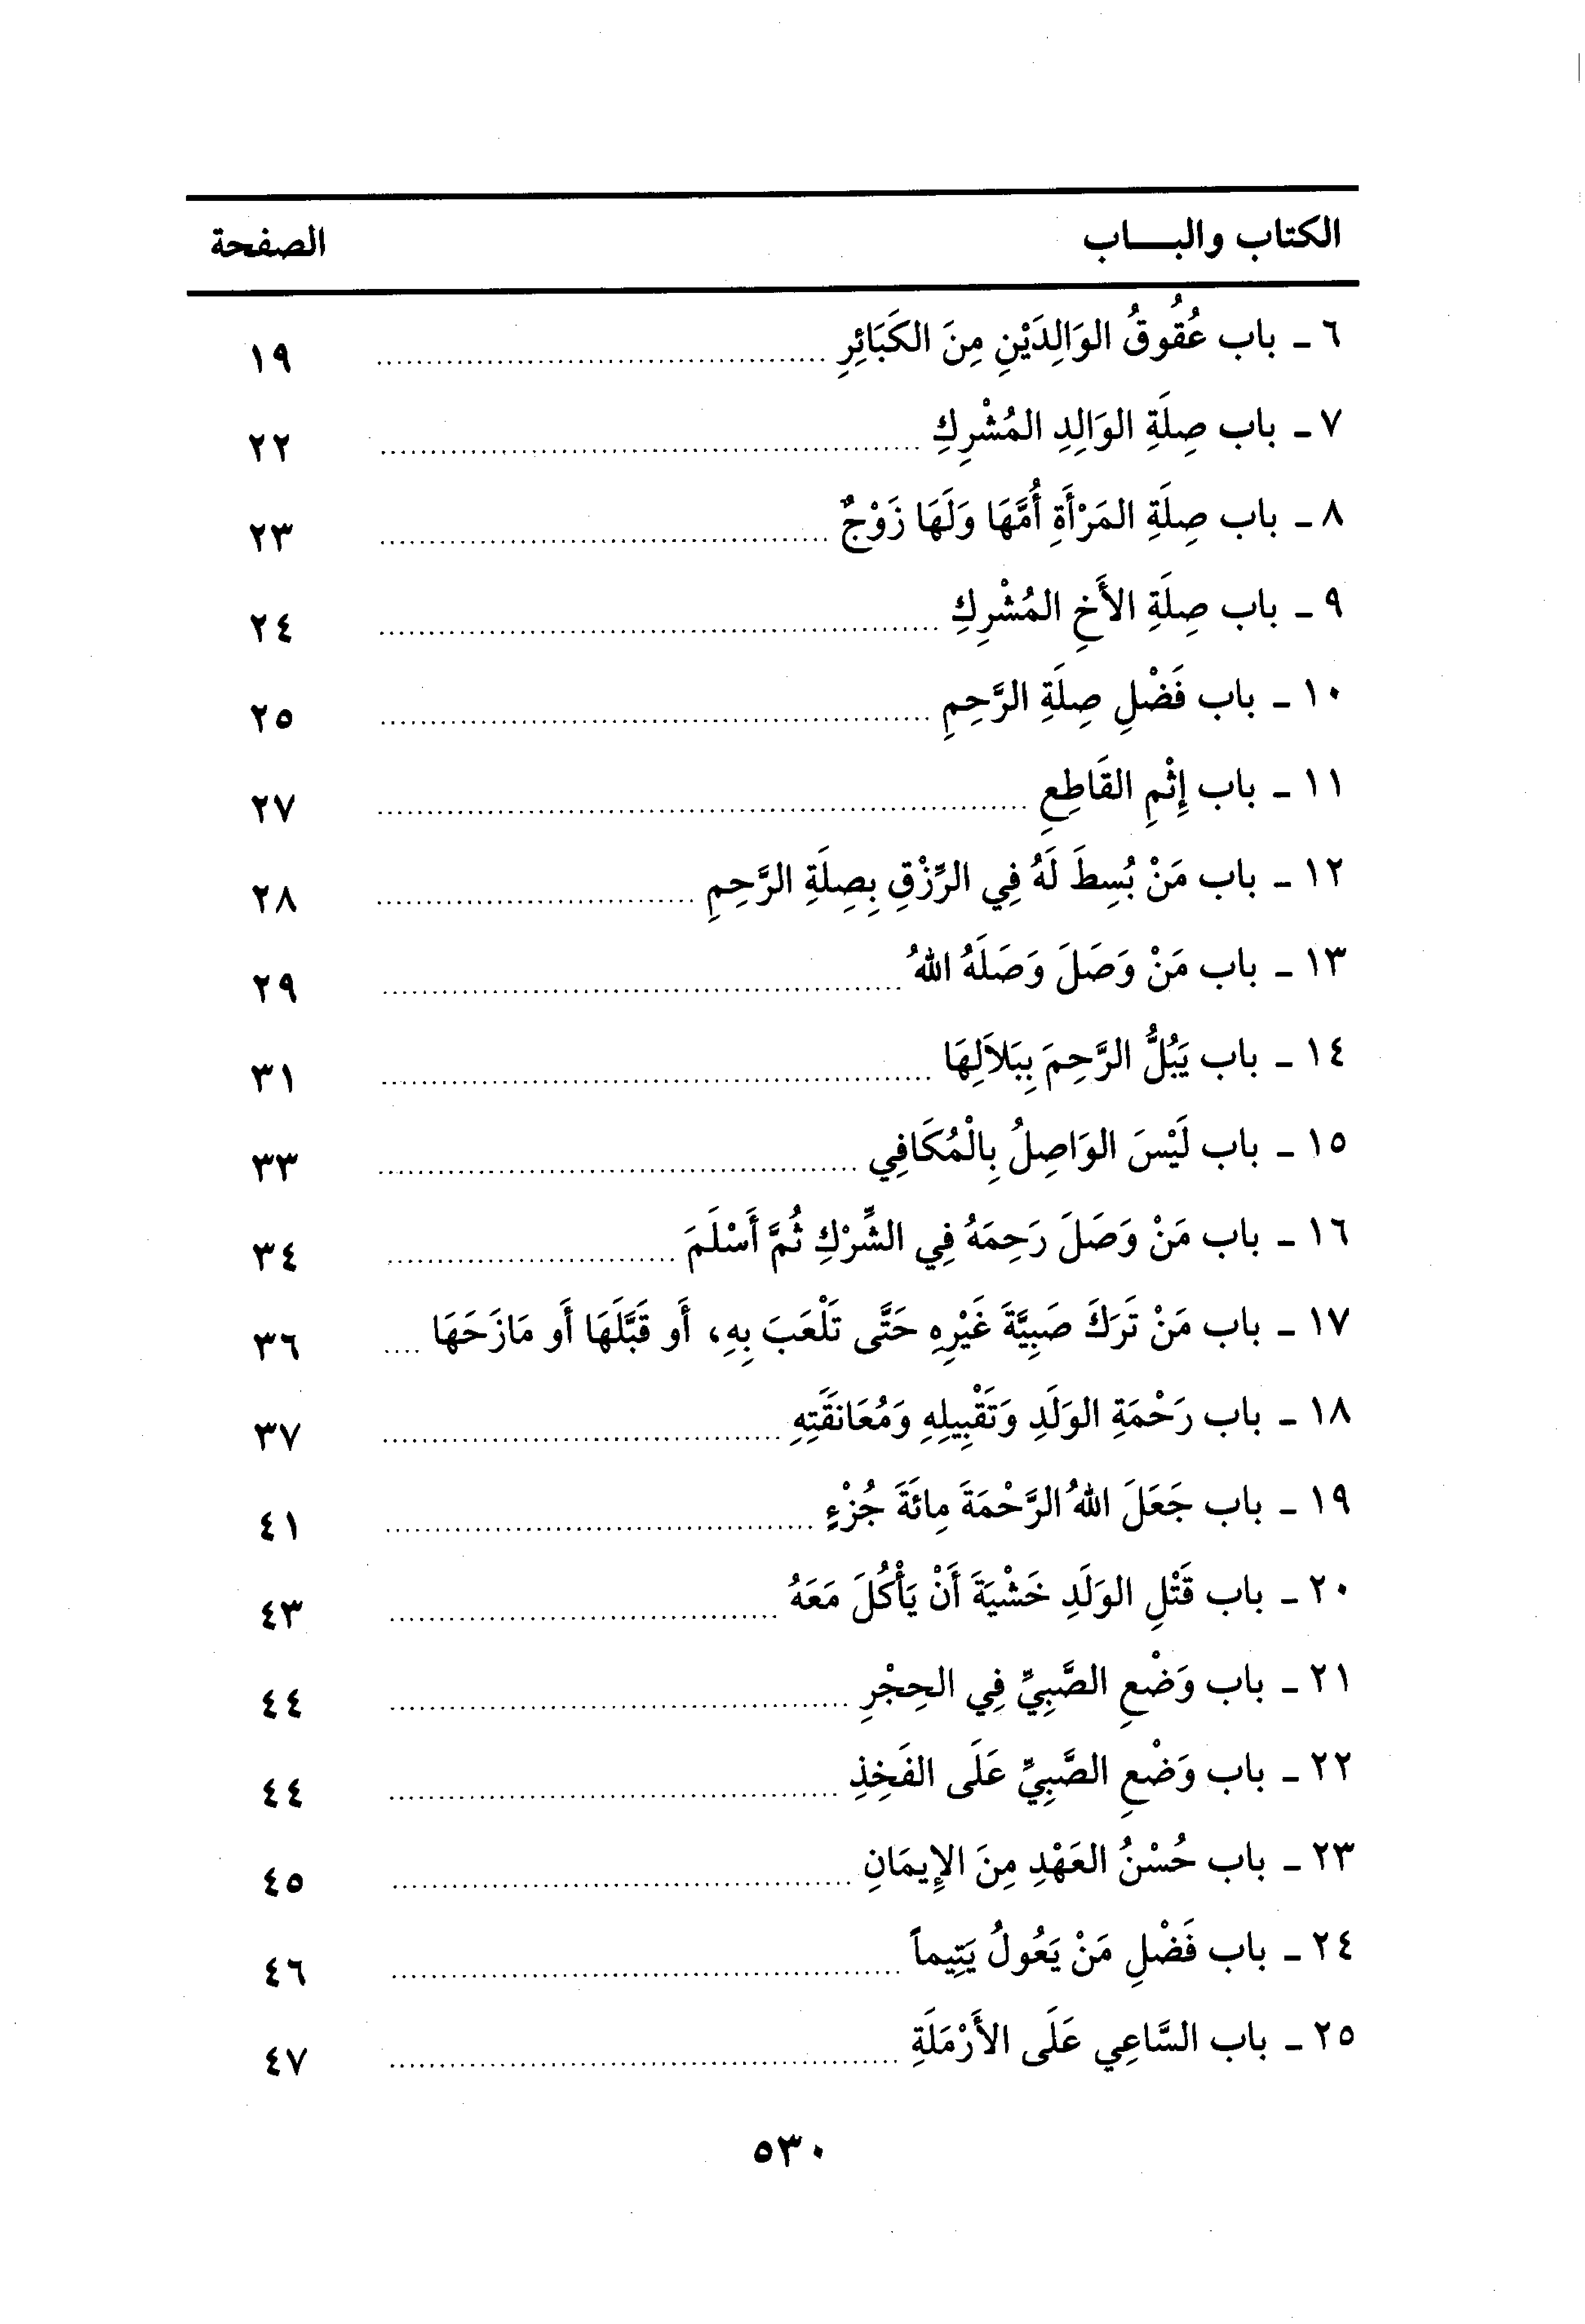 الكتاب والبـــاب الصفحة
٦ ـ باب عُقُوقُ الوَالِدَيْنِ مِنَ الكَبَائِرِ ........ ١٩
٧ ـ باب صِلَةِ الوَالِدِ المُشْرِكِ ........ ٢٢
٨ ـ باب صِلَةِ المَرْأَةِ أُمَّهَا وَلَهَا زَوْجٌ ........ ٢٣
٩ ـ باب صِلَةِ الأَخِ المُشْرِكِ ........ ٢٤
١٠ ـ باب فَضْلِ صِلَةِ الرَّحِمِ ........ ٢٥
١١ ـ باب إِثْمِ القَاطِعِ ........ ٢٧
١٢ ـ باب مَنْ بُسِطَ لَهُ فِي الرِّزْقِ بِصِلَةِ الرَّحِمِ ........ ٢٨
١٣ ـ باب مَنْ وَصَلَ وَصَلَهُ اللهُ ........ ٢٩
١٤ ـ باب يَبُلُّ الرَّحِمَ بِبَلاَلِهَا ........ ٣١
١٥ ـ باب لَيْسَ الوَاصِلُ بِالْمُكَافِي ........ ٣٣
١٦ ـ باب مَنْ وَصَلَ رَحِمَهُ فِي الشِّرْكِ ثُمَّ أَسْلَمَ ........ ٣٤
١٧ ـ باب مَنْ تَرَكَ صَبِيَّةَ غَيْرِهِ حَتَّى تَلْعَبَ بِهِ، أَو قَبَّلَهَا أَو مَازَحَهَا .... ٣٦
١٨ ـ باب رَحْمَةِ الوَلَدِ وَتَقْبِيلِهِ وَمُعَانَقَتِهِ ........ ٣٧
١٩ ـ باب جَعَلَ اللهُ الرَّحْمَةَ مِائَةَ جُزْءٍ ........ ٤١
٢٠ ـ باب قَتْلِ الوَلَدِ خَشْيَةَ أَنْ يَأْكُلَ مَعَهُ ........ ٤٣
٢١ ـ باب وَضْعِ الصَّبِيِّ فِي الحِجْرِ ........ ٤٤
٢٢ ـ باب وَضْعِ الصَّبِيِّ عَلَى الفَخِذِ ........ ٤٤
٢٣ ـ باب حُسْنُ العَهْدِ مِنَ الإِيمَانِ ........ ٤٥
٢٤ ـ باب فَضْلِ مَنْ يَعُولُ يَتِيماً ........ ٤٦
٢٥ ـ باب السَّاعِي عَلَى الأَرْمَلَةِ ........ ٤٧
٥٣٠